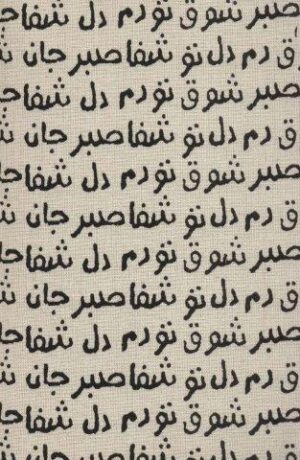 صبر شوق تو دم دل شفا
ق دم دل تو شفا صبر جان
صبر شوق تو دم دل شفا
ق دم دل تو شفا صبر جان
صبر شوق تو دم دل شفا
ق دم دل تو شفا صبر جان
صبر شوق تو دم دل شفا
ق دم دل تو شفا صبر جان
صبر شوق تو دم دل شفا
ق دم دل تو شفا صبر جان
صبر شوق تو دم دل شفا
ق دم دل تو شفا صبر جان